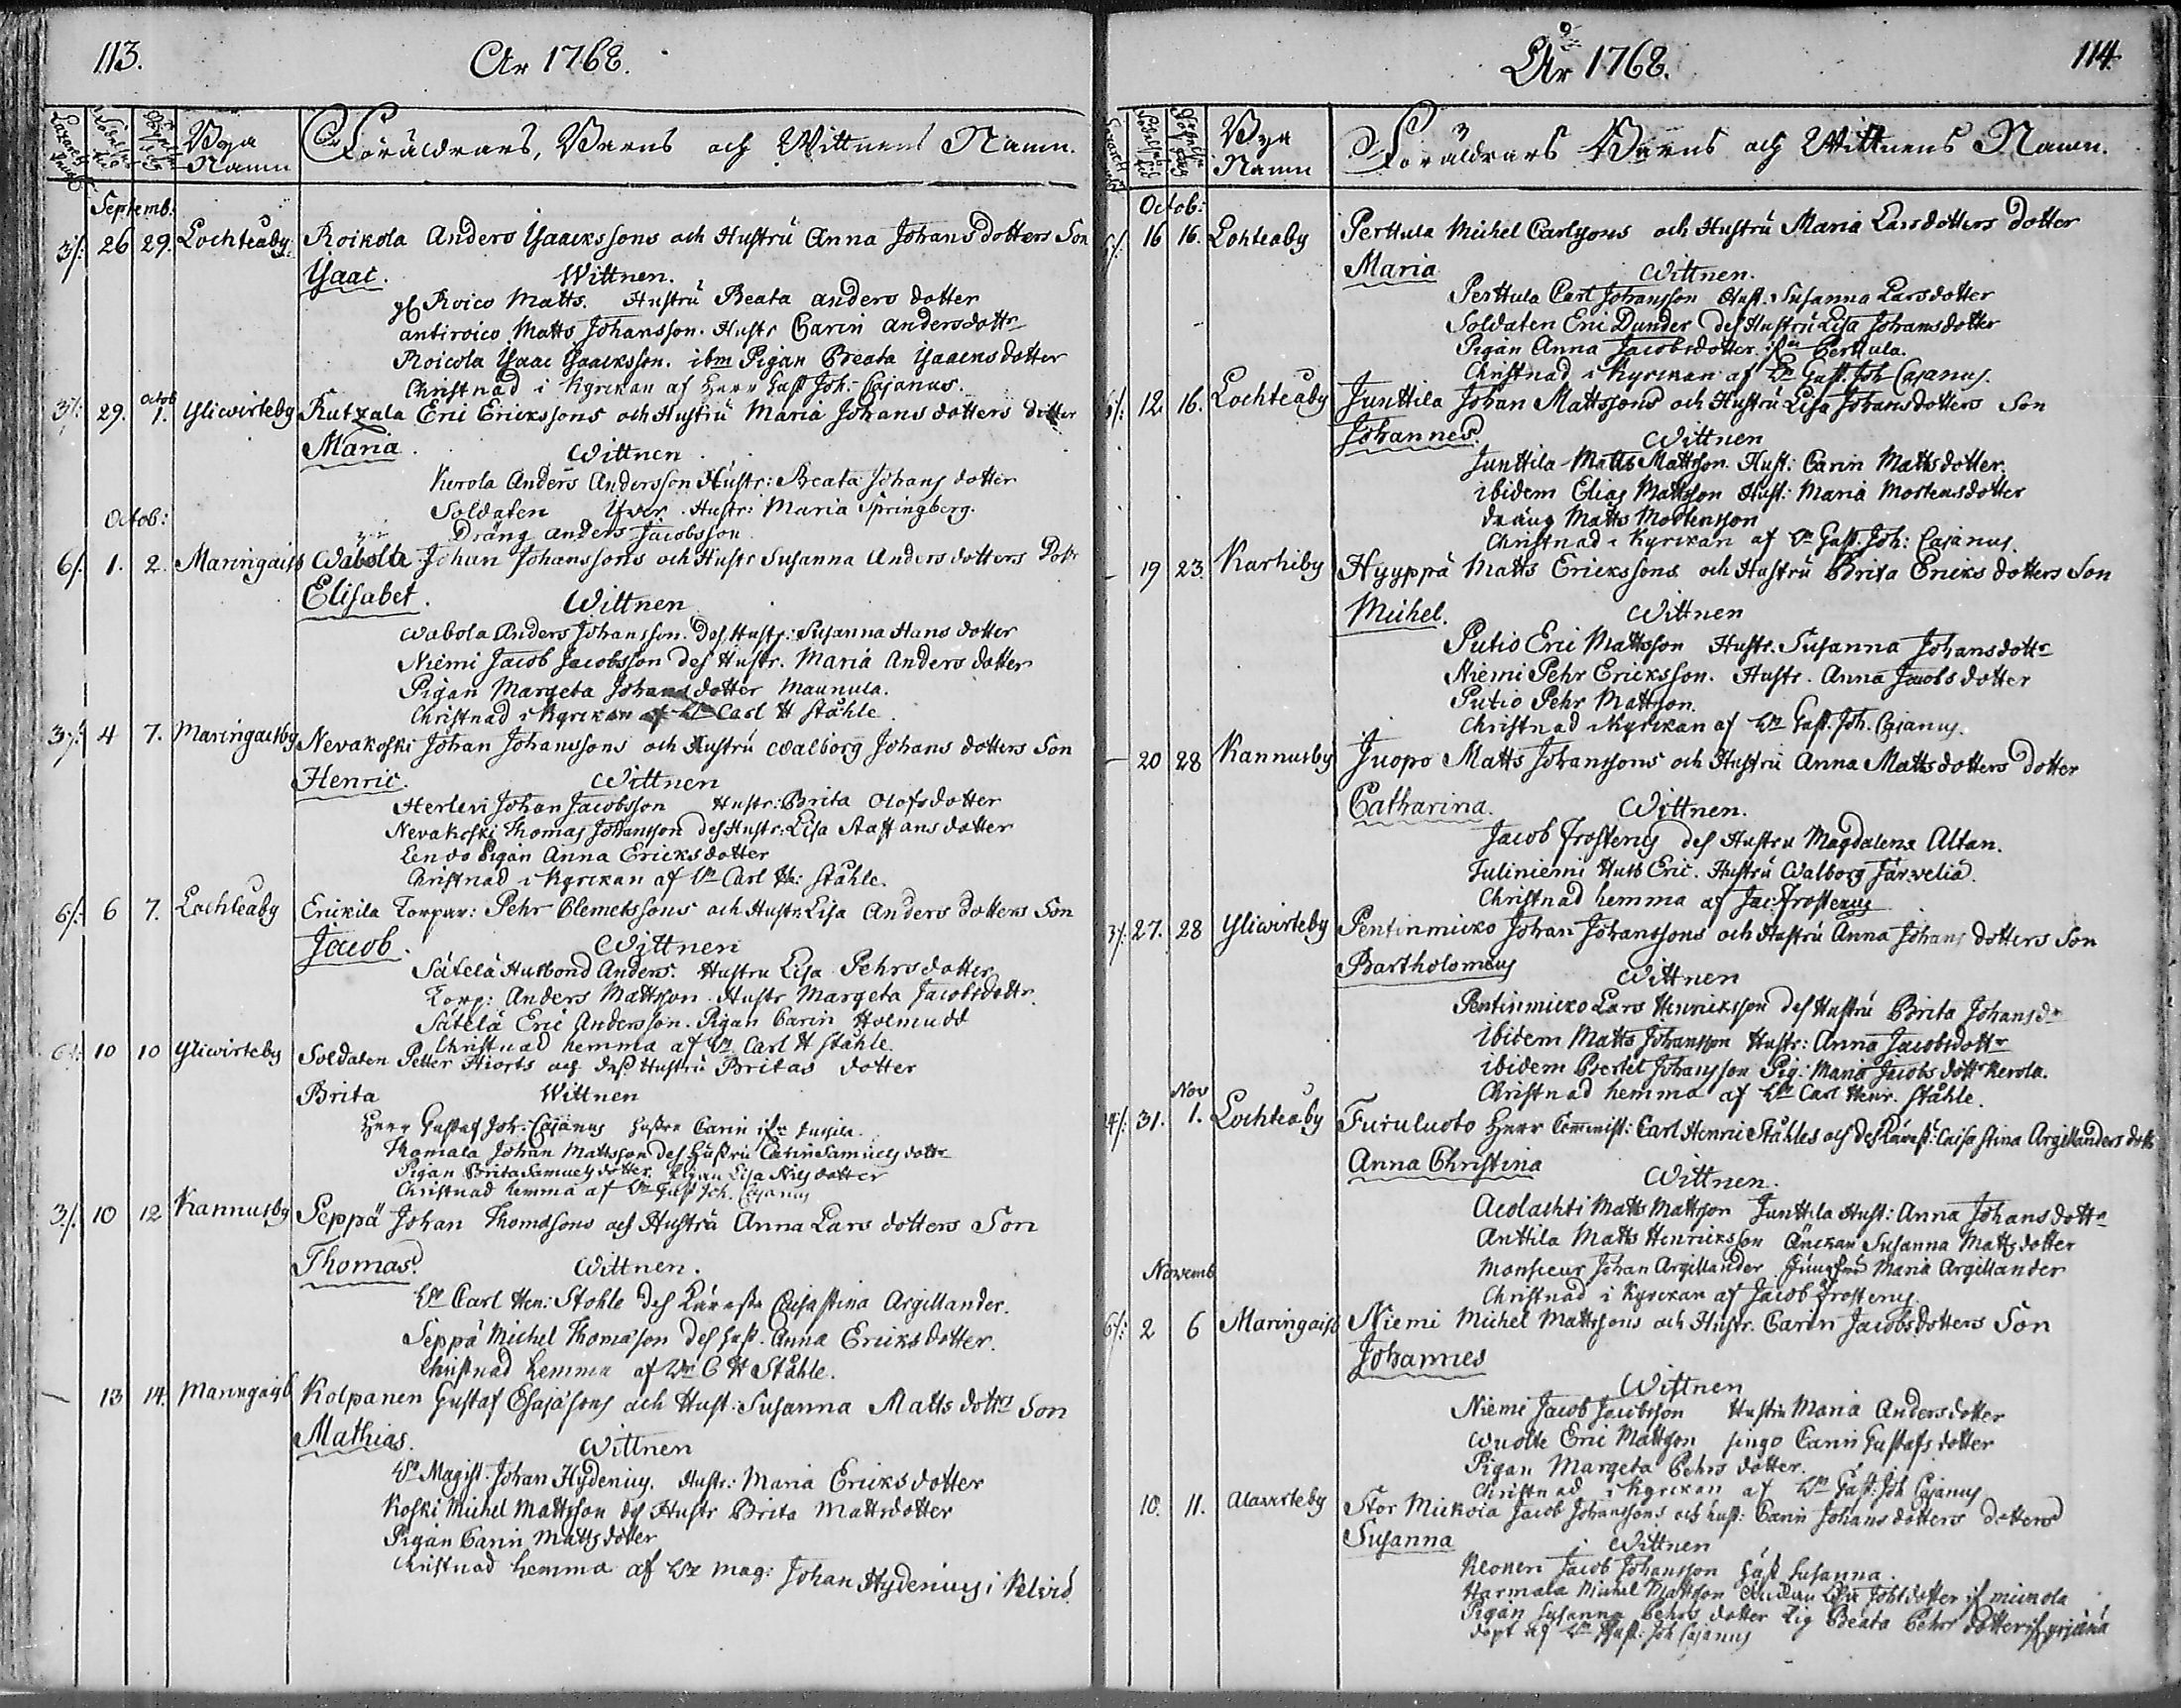 113.
År 1768.
Bya Namn
Föräldrars, Barns och Wittnens Namn.
Septemb:
3/: 26 29. Lochteåby: Roikola Anders Ysaackssons och Hustru Anna Johansdotters Son
Ysaac. Wittnen.
Roico Matts. Hustru Beata anders dotter
antiroico Matts Johansson. Hustr Carin andersdottr
Roicola Ysaac Ysaacksson. ibm Pigan Beata Ysaacks dotter
Christnad i Kyrckan af Herr Gust Joh: Cajanus.
3/: 29. Octob 1. Yliwirteby Rutzala Eric Erickssons och Hustru Maria Johans dotters dotter
Maria. Wittnen.
Kerola Anders Andersson Hustr: Beata Johans dotter
Soldaten Yver. Hustr: Maria Springberg.
Dräng anders Jacobsson
Octob:
6/. 1. 2. Maringaisb Wabola Johan Johanssons och Hustr Susanna Anders dotters Dotr
Elisabet. Wittnen
Wabola Anders Johansson. des Hustr: Susanna Hans dotter
Niemi Jacob Jacobsson des Hustr. Maria Anders dotter
Pigan Margeta Johans dotter Maunula.
Christnad i Kyrckan af Hr Carl H Ståhle.
3/: 4 7. Maringaisby Nevakoski Johan Johanssons och Hustru Walborg Johans dotters Son
Henric. Wittnen
Herlevi Johan Jacobsson Hustr: Brita Olofsdotter
Nevakoski Thomas Johansson des Hustr: Lisa Staffans dotter
Pigan Anna Ericksdotter
Christnad i Kyrckan af Hr Carl H: Ståhle.
6/: 6 7. Lochteåby Erickila Torpar: Pehr Clemetssons och Hustr Lisa Anders dotters Son
Jacob. Wittnen
Sätelä Husbond Anders. Hustru Lisa Pehrs dotter
Torp: Anders Mattsson. Hustr Margeta Jacobsdottr.
Sätelä Eric Andersson. Pigan Carin Holmudd
Christnad hemma af Hr Carl H Ståhle.
6/: 10 10 Yliwirteby Soldaten Petter Hiorts och dess Hustru Britas dotter
Brita Wittnen
Herr Gustaf Joh: Cajanus hustru Carin
Thomala Johan Mattsson des Hustru Carin Samuels dottr
Pigan Brita Samuels dotter. Pigan Lisa Nils dotter
Christnad hemma af Hr Gust Joh. Cajanus
3/. 10 12 Kannusby Seppä Johan Thomæsons och Hustru Anna Lars dotters Son
Thomas. Wittnen.
Hr Carl Hen: Stohle des Käreste Caisa Stina Argillander.
Seppä Michel Thomæson des Hust. Anna Ericks dotter.
Christnad hemma af Hr C H Ståhle.
— 13 14. Maringaisb Kolpanen Gustaf Esajæsons och Hust. Susanna Matts dottrs Son
Mathias. Wittnen
Hr Magist. Johan Hydenius. Hustr: Maria Ericks dotter
Koski Michel Mattsson des Hustr Brita Mattsdotter
Pigan Carin Matts dotter
Christnad hemma af Hr Mag: Johan Hydenius i Kelviå
År 1768.
114.
Byn Namn
Föräldrars Barns och Wittnens Namn.
Octob:
6/: 16 16. Lohteåby Perttula Michel Carlssons och Hustru Maria Larsdotters dotter
Maria Wittnen.
Perttula Carl Johansson Hust. Susanna Larsdotter
Soldaten Eric Dunder des Hustru Lisa Johansdotter
Pigan Anna Jacobsdotter ifrån Perttula.
Christnad i Kyrckan af Hr Gust. Joh Cajanus.
6/: 12. 16. Lochteåby Junttila Johan Mattssons och Hustru Lisa Johansdotters Son
Johannes. Wittnen
Junttila Matts Mattsson. Hust: Carin Matts dotter.
ibidem Elias Mattsson Hust: Maria Mortensdotter
dräng Matts Mortensson
Christnad i Kyrckan af Hr Gust. Joh: Cajanus.
— 19 23. Karhiby Hyyppä Matts Erickssons och Hustru Brita Ericks dotters Son
Michel. Wittnen
Putio Eric Mattsson Hustr. Susanna Johansdottr
Niemi Pehr Ericksson. Hustr. Anna Jacobs dotter
Putio Pehr Mattsson.
Christnad i Kyrckan af Hr Gust. Joh. Cajanus.
— 20 28 Kannusby Juopo Matts Johanssons och Hustru Anna Matts dotters dotter
Catharina. Wittnen.
Jacob Frosterus des Hustru Magdalena Altan.
Juliniemi Husb Eric. Hustru Walborg Järwelia.
Christnad hemma af Jac Frosterus
3/: 27. 28 Yliwirteby Pentinmicko Johan Johanssons och Hustru Anna Johans dotters Son
Bartholomeus Wittnen
Pentinmicko Lars Henricksson des Hustru Brita Johansdr
ibidem Matts Johansson Hustr: Anna Jacobsdottr
ibidem Bertel Johansson Pig: Maria Jacobs dottr Kerola.
Christnad hemma af Hr Carl Henr. Ståhle.
4/: 31. Nov 1. Lochteåby Furuluoto Herr Commist: Carl Henric Ståhles och des Kärest: Caisa Stina Argillanders dottr
Anna Christina Wittnen.
Aolachti Matts Mattsson Junttila Hust: Anna Johans dottr
Anttila Matts Henricksson Änckan Susanna Matts dotter
Monsieur Johan Argillander Jungfru Maria Argillander
Christnad i Kyrckan af Jacob Frosterus.
Novemb
6/: 2 6 Maringaisb Niemi Michel Mattssons och Hustr. Carin Jacobs dotters Son
Johannes
Wittnen
Niemi Jacob Jacobsson Hustru Maria Andersdotter
Wuolte Eric Mattsson Carin Gustafs dotter
Pigan Margeta Pehrs dotter.
Christnad i Kyrckan af Hr Gust: Joh Cajanus
10. 11. Alawirteby Stor Mickola Jacob Johanssons och hust: Carin Johans dotters dotter
Susanna Wittnen
Klonen Jacob Johansson Hust Susanna.
Harmala Michel Mattsson Johsdotter if mickola
Pigan Susanna Pehrs dotter Pig Beata Pehrs dotter if yrjänä
döpt af Hr Gust: Joh Cajanus